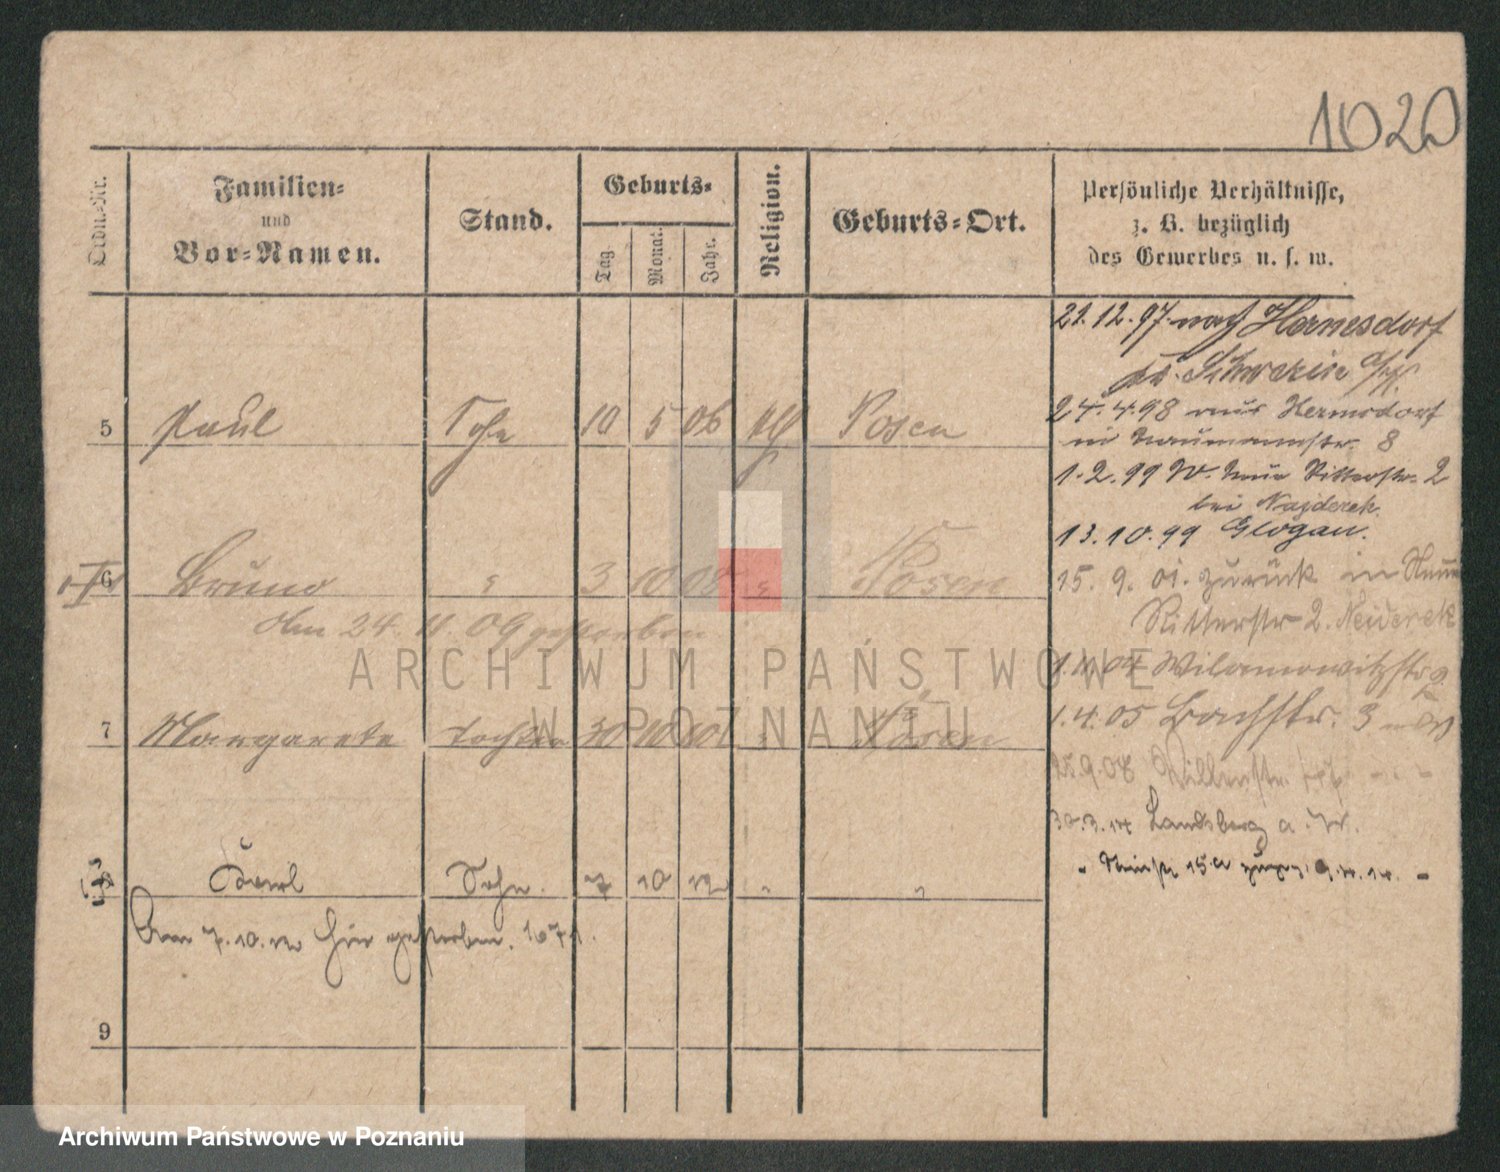 1020
Ordn.-Nr.
Familien-
und
Vor-Namen.
Stand.
Geburts-
Tag.
Monat.
Jahr.
Religion.
Geburts-Ort.
Persönliche Verhältnisse,
z. B. bezüglich
des Gewerbes u. s. w.
5 Paul Sohn 10 5 06 Posen
6 Bruno " 3 10 08 " Posen
Am 24. 11. 09 gestorben
7 Margarete Tochter 30 10 Posen
Sohn. 7 10 12 " "
Am 7.10.12 hier gestorben. 1671.
9
21.12.97 nach Hermsdorf
Kr. Schwerin
24.4.98 aus Hermsdorf
in Naumannstr. 8
1.2.99 W. Neue Ritterstr. 2
bei Najderek.
13.10.99 Glogau.
15. 9. 01. zurück in Neue
Ritterstr 2. Neiderek
1. 04 Wilamowitzstr 2
1.4.05 Bachstr. 3
25.9.08
30.3.14 Landsberg a. W.
" 15a 9.4.14. -
ARCHIWUM PAŃSTWOWE
W POZNANIU
Archiwum Państwowe w Poznaniu